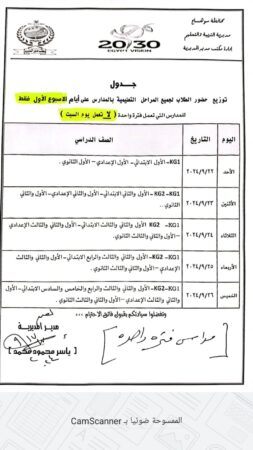 محافظة سوهاج
مديرية التربية والتعليم
إدارة مكتب مدير المديرية
20/30
EGYPT VISION
جدول
توزيع حضور الطلاب لجميع المراحل التعليمية بالمدارس على أيام الاسبوع الأول فقط
للمدارس التي تعمل فترة واحدة ( لا تعمل يوم السبت )
اليوم التاريخ الصف الدراسي
الأحد ٢٠٢٤/٩/٢٢ KG1- الأول الابتدائي- الأول الإعدادي – الأول الثانوي .
الأثنين ٢٠٢٤/٩/٢٣ KG2-KG1- الأول والثاني الابتدائي- الأول والثاني الإعدادي- الأول والثاني الثانوي .
الثلاثاء ٢٠٢٤/٩/٢٤ KG2 -KG1 الأول والثاني والثالث الابتدائي- الأول والثاني والثالث الإعدادي –الأول والثاني والثالث الثانوي.
الأربعاء ٢٠٢٤/٩/٢٥ KG2-KG1- الأول والثاني والثالث والرابع الابتدائي- الأول والثاني والثالث الإعدادي – الأول والثاني والثالث الثانوي .
الخميس ٢٠٢٤/٩/٢٦ KG2-KG1- الأول والثاني والثالث والرابع والخامس والسادس الابتدائي- الأول والثاني والثالث الإعدادي –الأول والثاني والثالث الثانوي .
وتفضلوا سيادتكم بقبول فائق الاحترام ،،،
مدير المديرية
ياسر محمود محمد
مدارس فترة واحدة
الممسوحة ضوئيا بـ CamScanner